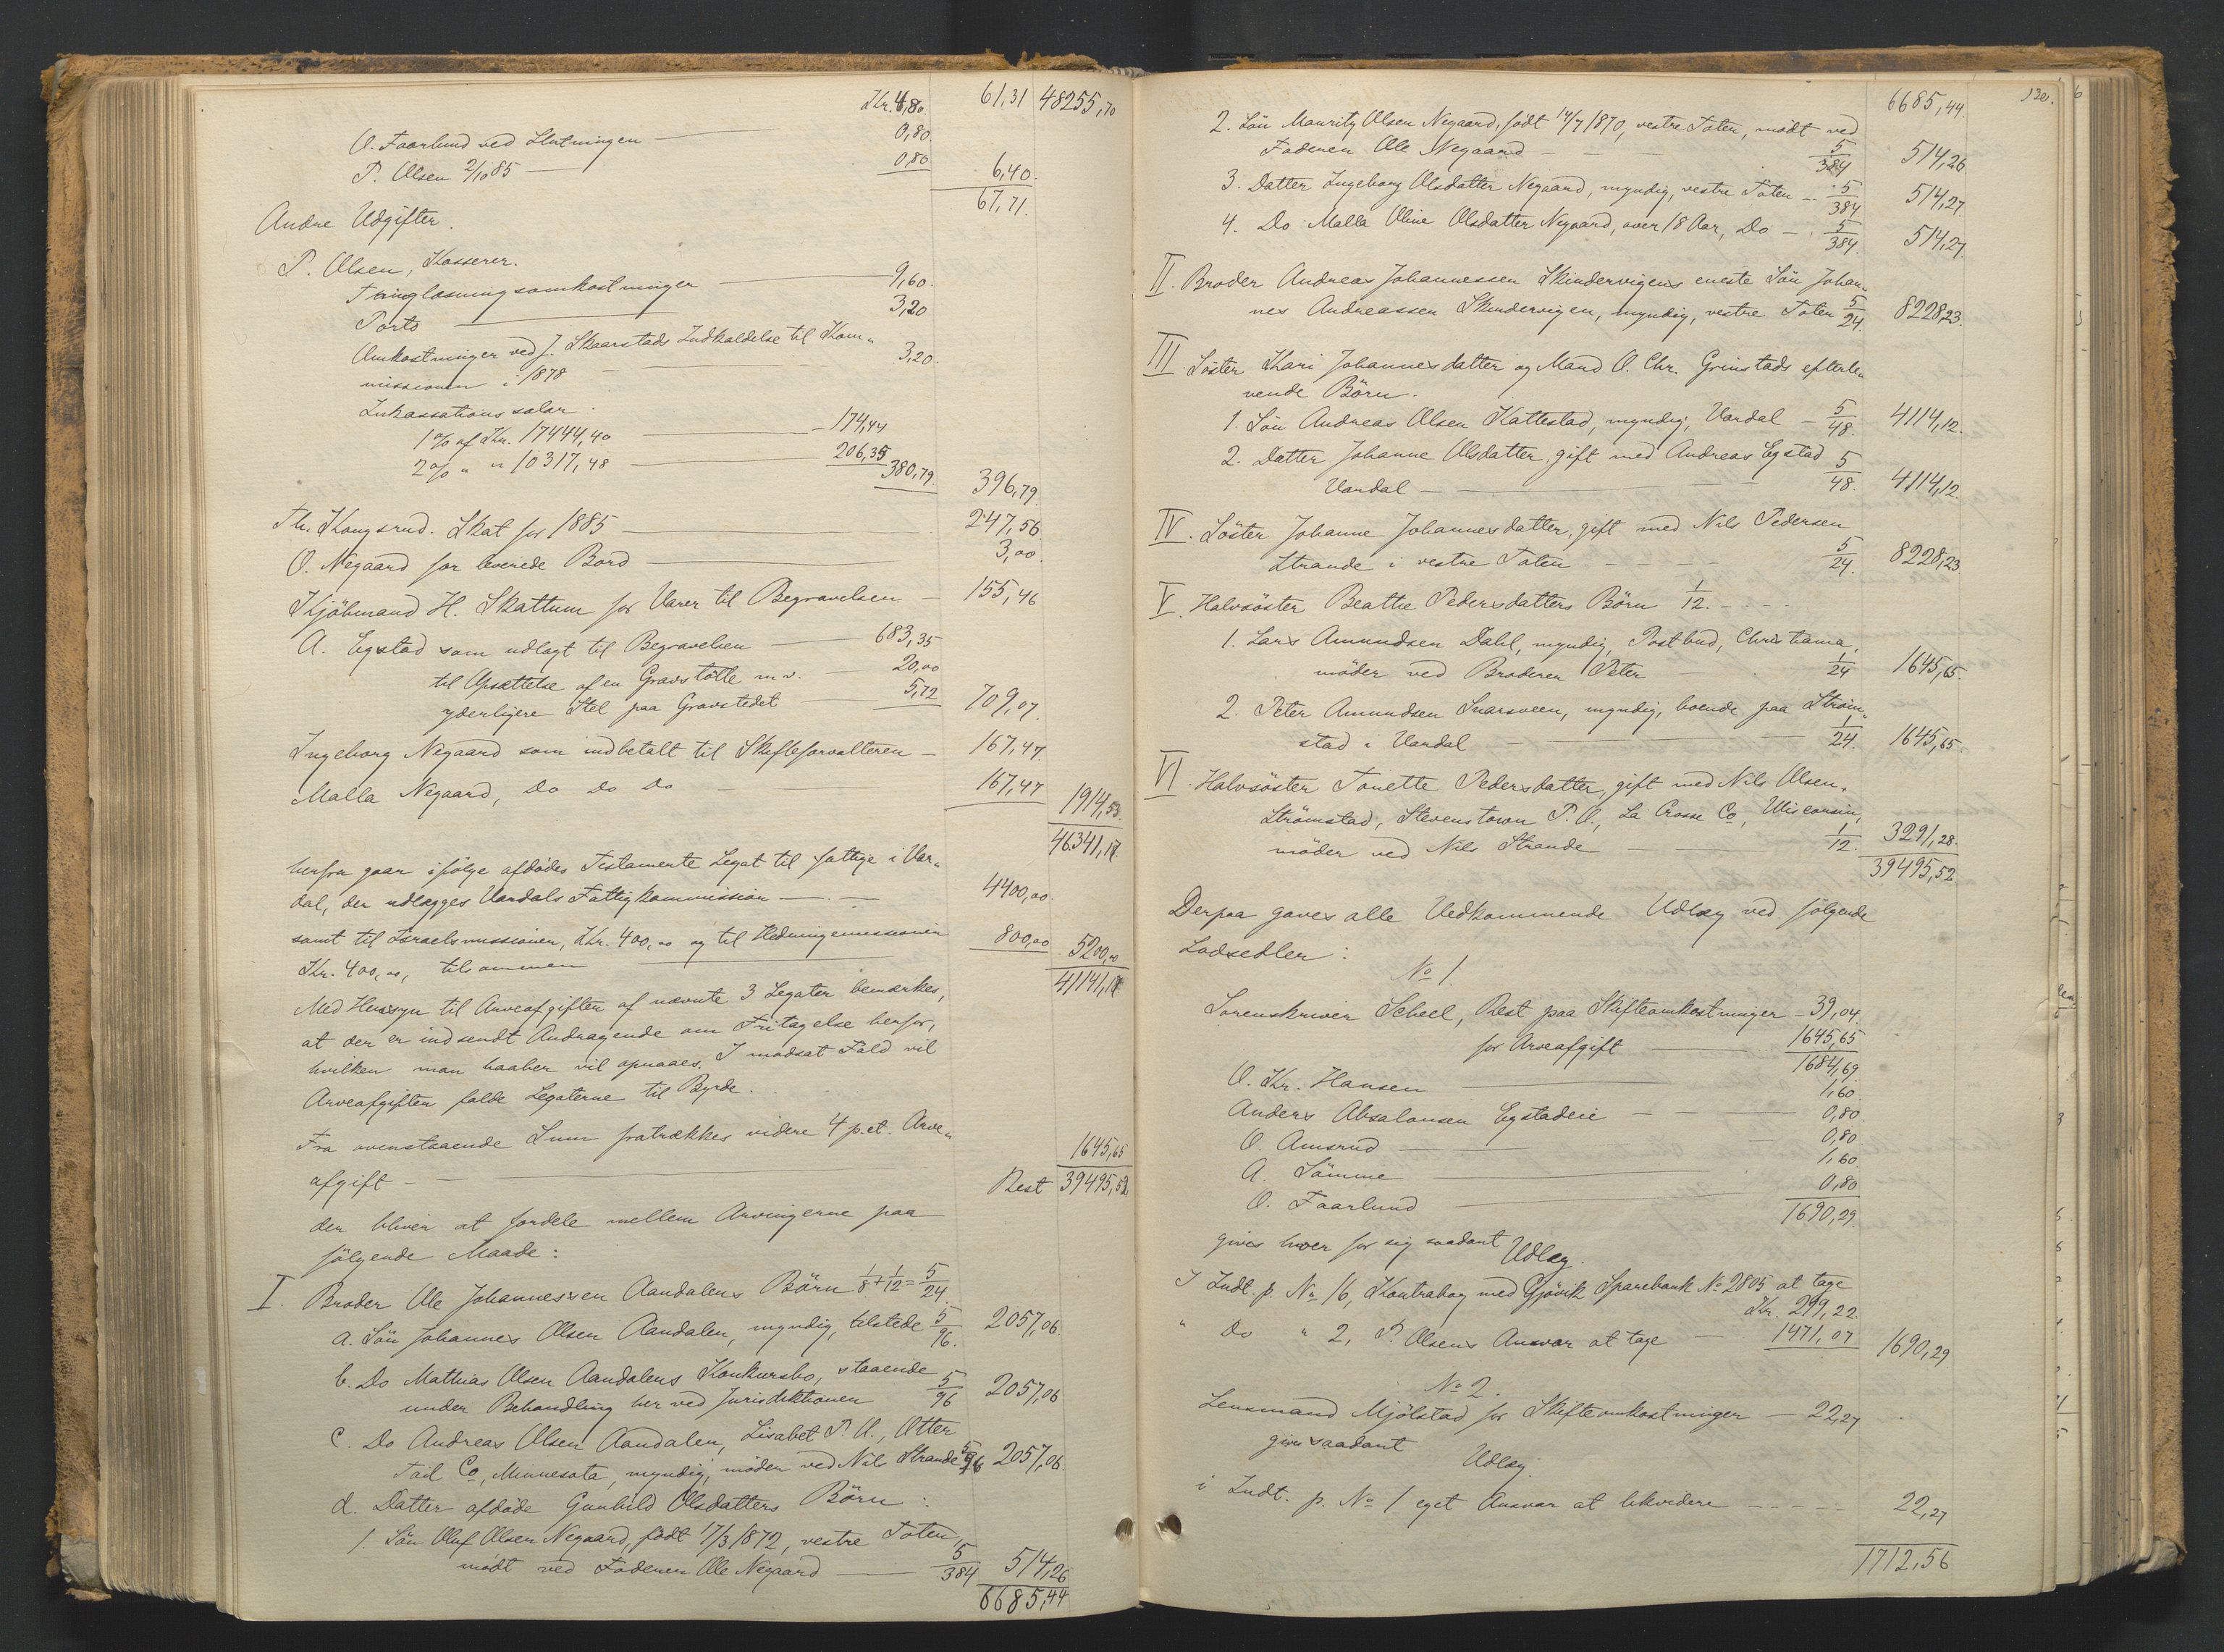 Kr. 4,80. 61,31 48255,70
O. Faarlund ved Slutningen — 0,80.
P. Olsen 2/10 85 — 0,80 6,40.
67,71.
Andre Udgifter.
P. Olsen, Kasserer.
Tinglæsningsomkostninger — 9,60.
Porto — 3,20
Omkostninger ved J. Skaarstads Indkaldelse til Kom-
missionen i 1878 — 3,20.
Inkassationssalær.
1 % af Kr. 17444,40 — 174,44
2 % " " 10317,48 — 206,35
380,79 396,79.
Th. Kongsrud. Skat for 1885 — 247,56.
O. Negaard for leverede Bord — 3,00.
Kjøbmand H. Skattum for Varer til Begravelsen — 155,46
A. Egstad som udlagt til Begravelsen — 683,35
til Opsættelse af en Gravstøtte m.v. — 20,00
yderligere Stel paa Gravstedet — 5,72 709,07.
Ingeborg Negaard som indbetalt til Skifteforvalteren — 167,47.
Malla Negaard, Do Do Do — 167,47 1914,53.
46341,17.
herfra gaar ifølge afdødes Testamente Legat til fattige i Var-
dal, der udlægges Vardals Fattigkommission — 4400,00.
samt til Israelsmissionen, Kr. 400,00 og til Hedningemissionen
Kr. 400,00, tilsammen — 800,00 5200,00
41141,17
Med Hensyn til Arveafgiften af nævnte 3 Legater bemærkes,
at der er indsendt Andragende om Fritagelse herfor,
hvilken man haaber vil opnaaes. I modsat Fald vil
Arveafgiften falde Legaterne til Byrde.
Fra ovenstaaende Sum fratrækkes videre 4 p.ct. Arve-
afgift — 1645,65
Rest 39495,52
der bliver at fordele mellem Arvingerne paa
følgende Maade:
I. Broder Ole Johannessen Aandalens Børn 1/8 + 1/12 = 5/24.
a. Søn Johannes Olsen Aandalen, myndig, tilstede 5/96. 2057,06.
b. Do Mathias Olsen Aandalens Konkursbo, staaende
under Behandling her ved Jurisdiktionen 5/96 2057,06
c. Do Andreas Olsen Aandalen, Lisabet P. O., Otter
Tail Co, Minnesota, myndig, møder ved Nils Strande 5/96 2057,06.
d. Datter afdøde Gunhild Olsdatters Børn:
1. Søn Oluf Olsen Negaard, født 17/3 1872, vestre Toten,
mødt ved Faderen Ole Negaard — 5/384 514,26
6685,44
130.
6685,44.
2. Søn Mauritz Olsen Negaard, født 14/7 1870, vestre Toten, mødt ved
Faderen Ole Negaard — 5/384 514,26
3. Datter Ingeborg Olsdatter Negaard, myndig, vestre Toten — 5/384 514,27.
4. Do Malla Oline Olsdatter Negaard, over 18 Aar, Do — 5/384. 514,27.
II. Broder Andreas Johannessen Skindervigens eneste Søn Johan-
nes Andreassen Skindervigen, myndig, vestre Toten 5/24. 8228,23.
III. Søster Kari Johannesdatter og Mand O. Chr. Grinstads efterle-
vende Børn.
1. Søn Andreas Olsen Kattestad, myndig, Vardal — 5/48. 4114,12.
2. Datter Johanne Olsdatter, gift med Andreas Egstad
Vardal — 5/48. 4114,12.
IV. Søster Johanne Johannesdatter, gift med Nils Pedersen
Strande i vestre Toten — 5/24. 8228,23
V. Halvsøster Beathe Pedersdatters Børn 1/12. —
1. Lars Amundsen Dahl, myndig, Postbud, Christiania,
møder ved Broderen Peter — 1/24 1645,65.
2. Peter Amundsen Snarsveen, myndig, boende paa Strøm-
stad i Vardal — 1/24. 1645,65.
VI. Halvsøster Tonette Pedersdatter, gift med Nils Olsen,
Strømstad, Stevenstown P. O., La Crosse Co, Wisconsin,
møder ved Nils Strande — 1/12. 3291,28.
39495,52
Derpaa gaves alle Vedkommende Udlæg ved følgende
Lodsedler:
No 1.
Sorenskriver Scheel, Rest paa Skifteomkostninger — 39,04.
for Arveafgift — 1645,65
1684,69
O. Kr. Hansen — 1,60.
Anders Absalonsen Egstadeie — 0,80.
O. Amsrud — 0,80.
A. Sømme — 1,60
O. Faarlund — 0,80
1690,29
gives hver for sig saadant Udlæg.
I Indt. p. No 16, Kontrabog med Gjøvik Sparebank No 2805 at tage
Kr. 219,22.
" Do " 2, P. Olsens Ansvar at tage — 1471,07 1690,29
No 2.
Lensmand Mjølstad for Skifteomkostninger — 22,27
gives saadant Udlæg
i Indt. p. No 1 eget Ansvar at likvidere — 22,27
1712,56